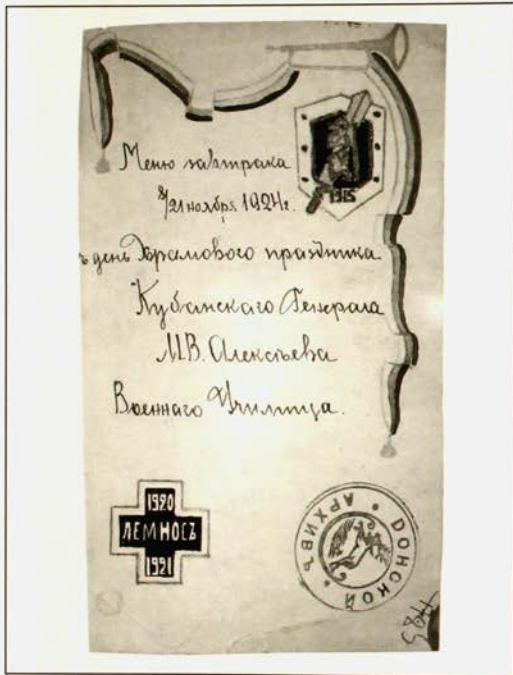 Меню завтрака
8/21 ноября 1924г.
1915
ъ день Храмового праздника
Кубанскаго Генерала
М.В. Алексѣева
Военнаго Училища.
1920
ЛЕМНОСЪ
1921
ДОНСКОЙ • АРХИВЪ •